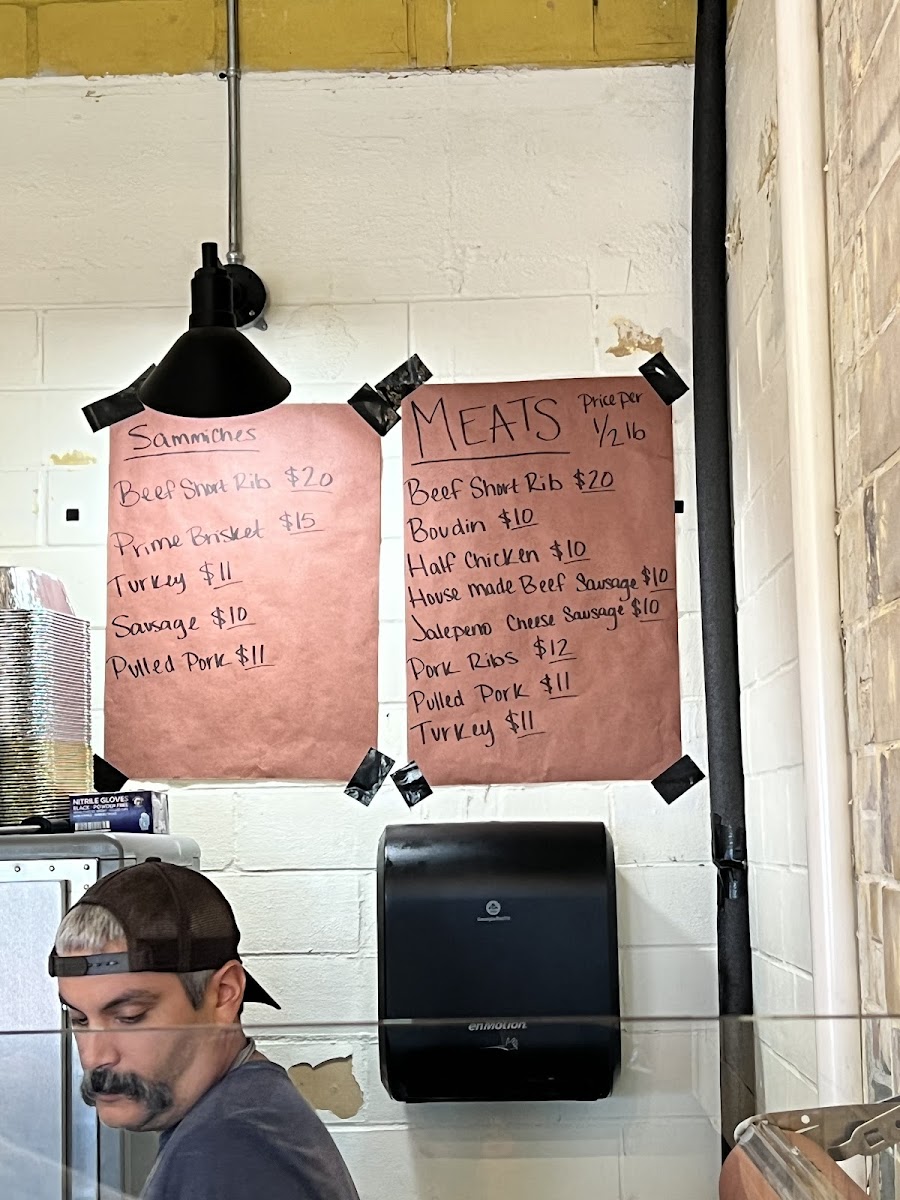 Sammiches
Beef Short Rib $20
Prime Brisket $15
Turkey $11
Sausage $10
Pulled Pork $11
MEATS Price per 1/2 lb
Beef Short Rib $20
Boudin $10
Half Chicken $10
House made Beef Sausage $10
Jalepeno Cheese Sausage $10
Pork Ribs $12
Pulled Pork $11
Turkey $11
NITRILE GLOVES
BLACK · POWDER FREE
enMotion